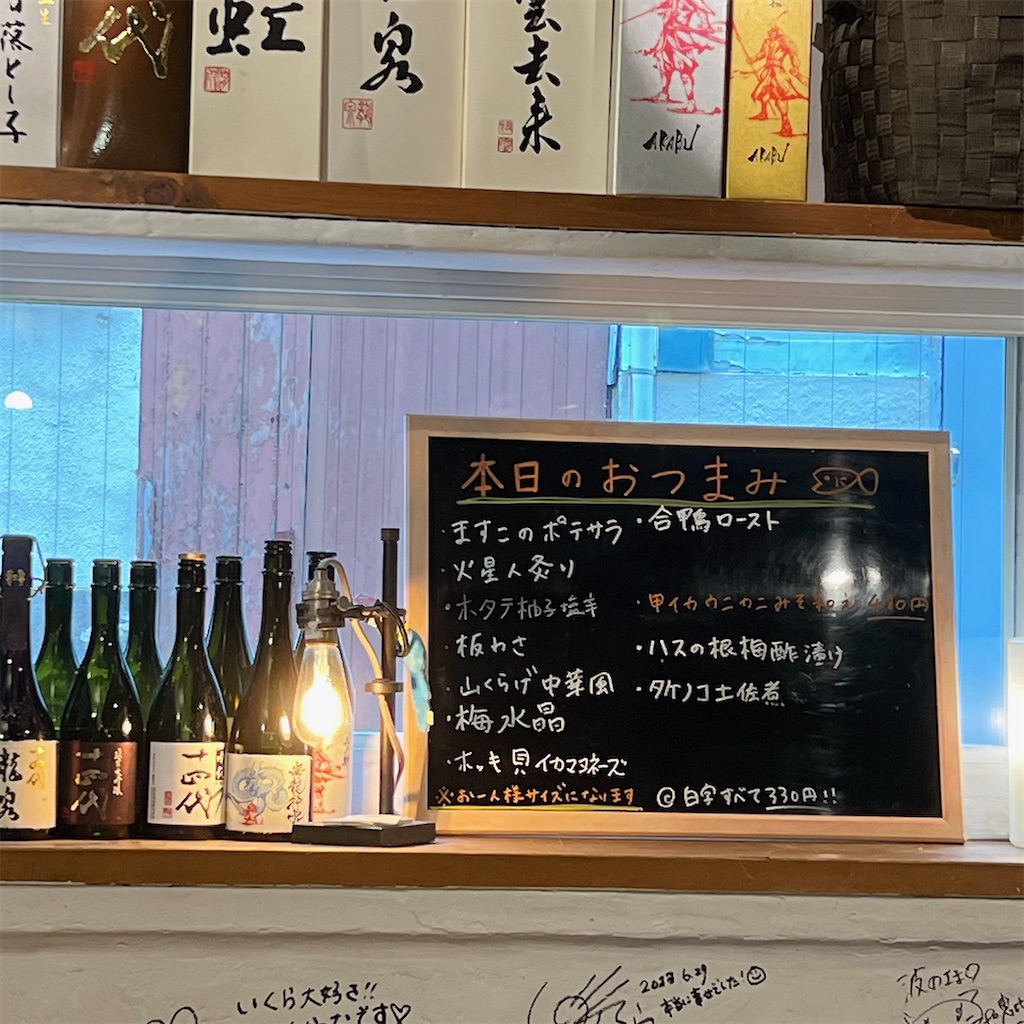 落とし子
代
虹
泉
雲去来
AKABU
AKABU
本日のおつまみ
・ますこのポテサラ
・火星人炙り
・ホタテ柚子塩辛
・板わさ
・山くらげ中華風
・梅水晶
・ホッキ貝イカマヨネーズ
・合鴨ロースト
・甲イカウニカニみそ和え 480円
・ハスの根梅酢漬け
・タケノコ土佐煮
※お一人様サイズになります
◎白字すべて330円!!
龍泉
十四代
十四代
いくら大好き!!
です♡
6.29